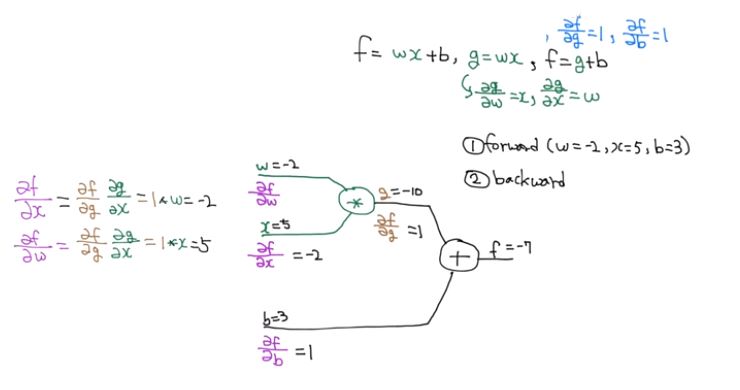 , ∂f/∂g = 1, ∂f/∂b = 1
f = wx+b, g = wx, f = g+b
∂g/∂w = x, ∂g/∂x = w
① forward (w = -2, x=5, b=3)
② backward
∂f/∂x = ∂f/∂g ∂g/∂x = 1 * w = -2
∂f/∂w = ∂f/∂g ∂g/∂x = 1*x = 5
w = -2
∂f/∂w
*
g = -10
∂f/∂g = 1
x=5
∂f/∂x = -2
+
f = -7
b=3
∂f/∂b = 1